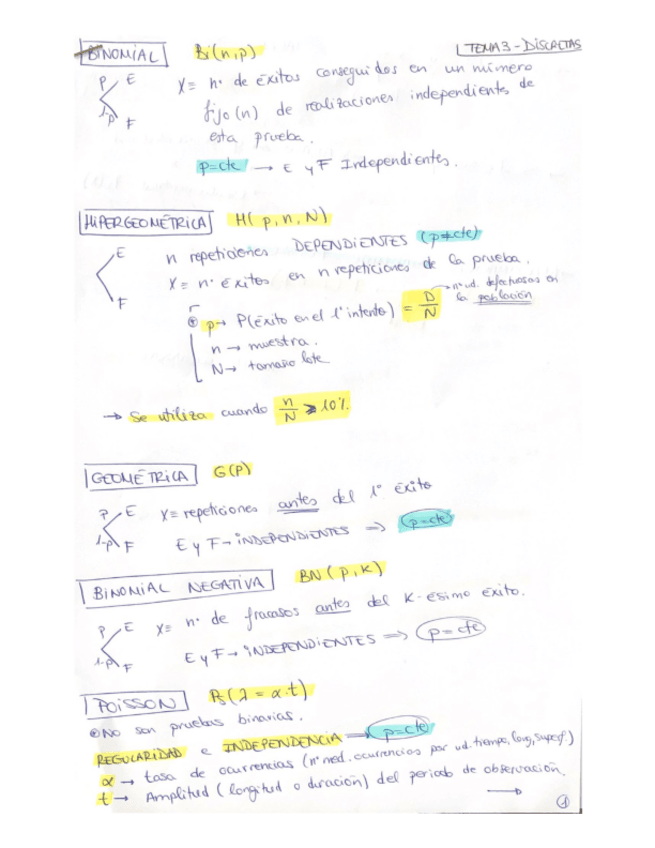 BINOMIAL Bi(n,p) TEMA 3 - DISCRETAS
p E X = nº de éxitos conseguidos en un número
1-p F fijo (n) de realizaciones independients de
esta prueba.
p=cte → E y F Independientes.
HIPERGEOMÉTRICA H( p, n, N)
E n repeticiones DEPENDIENTES (p≠cte)
X = nº éxitos en n repeticiones de la prueba.
F → nº ud. defectuosas en la población
p → P(éxito en el 1º intento) = D/N
n → muestra.
N → tamaño lote
→ Se utiliza cuando n/N ≥ 10%.
GEOMÉTRICA G(p)
p E X = repeticiones antes del 1º éxito
1-p F E y F → INDEPENDIENTES ⇒ (p=cte)
BINOMIAL NEGATIVA BN ( p, k)
p E X = nº de fracasos antes del K-ésimo éxito.
1-p F E y F → INDEPENDIENTES ⇒ (p=cte)
POISSON Ps (λ = α.t)
No son pruebas binarias.
REGULARIDAD e INDEPENDENCIA → (p=cte)
α → tasa de ocurrencias (nº med. ocurrencias por ud. tiempo, long, superf.)
t → Amplitud ( longitud o duración) del periodo de observación.
→
1